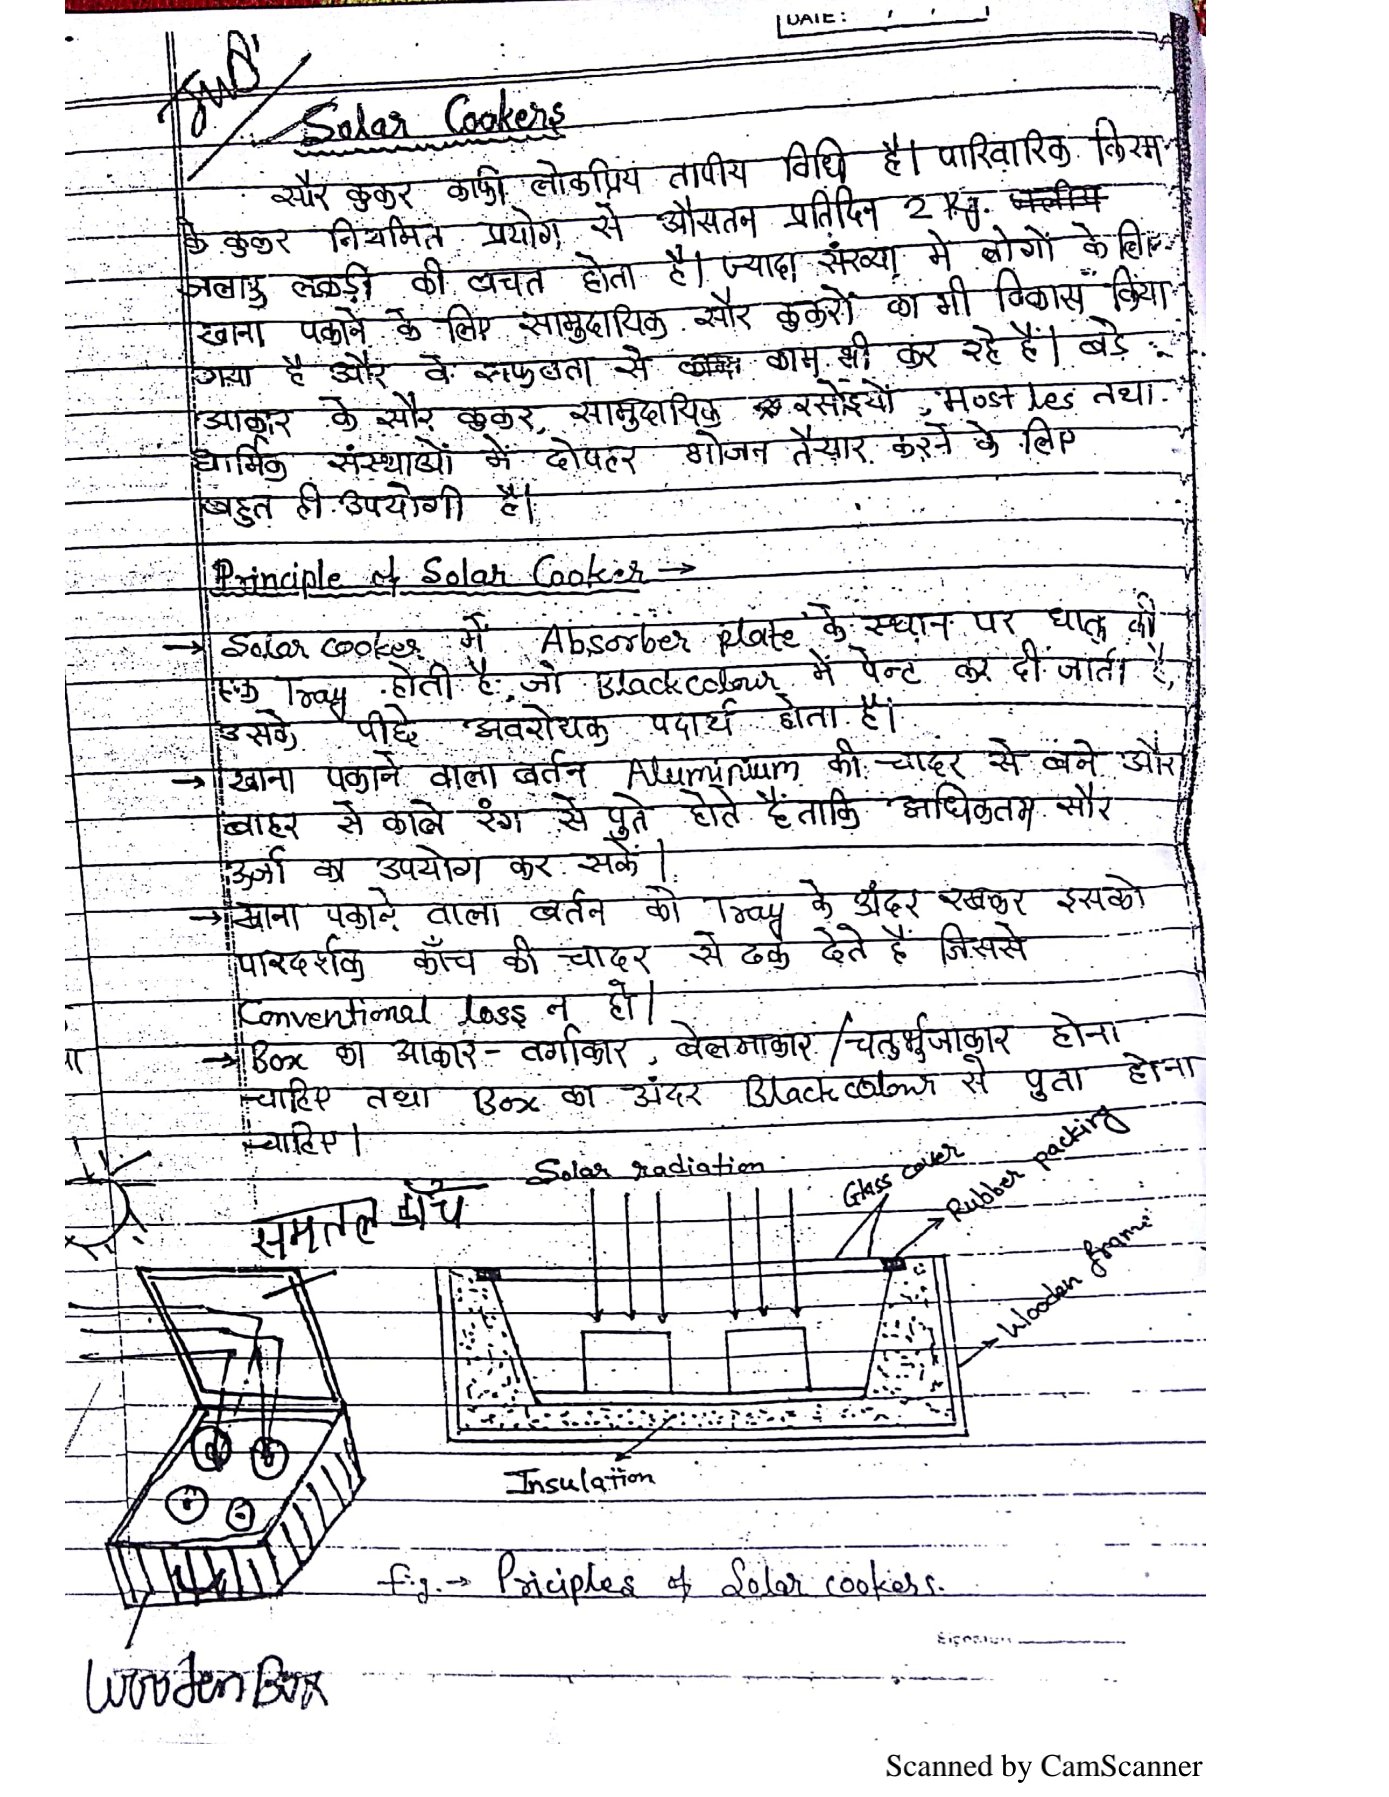 DATE:
Solar Cookers
सौर कुकर काफी लोकप्रिय तापीय विधि है। पारिवारिक किस्म
के कुकर नियमित प्रयोग से औसतन प्रतिदिन 2 Kg.
जलाऊ लकड़ी की बचत होता है। ज्यादा संख्या मे लोगों के लिए
खाना पकाने के लिए सामुदायिक सौर कुकरों का भी विकास किया
गया है और वे सफलता से काम भी कर रहे हैं। बड़े
आकार के सौर कुकर, सामुदायिक रसोइयों, Mostles तथा
धार्मिक संस्थाओं में दोपहर भोजन तैयार करने के लिए
बहुत ही उपयोगी है।
Principle of Solar Cooker →
→ Solar cooker में Absorber plate के स्थान पर धातु की
एक Tray होती है, जो Black colour में पेन्ट कर दी जाती है,
उसके पीछे अवरोधक पदार्थ होता है।
→ खाना पकाने वाला बर्तन Aluminium की चादर से बने और
बाहर से काले रंग से पुते होते हैं ताकि अधिकतम सौर
उर्जा का उपयोग कर सकें।
→ खाना पकाने वाला बर्तन को Tray के अंदर रखकर इसको
पारदर्शक काँच की चादर से ढक देते हैं जिससे
Conventional loss न हो।
→ Box का आकार - वर्गाकार, बेलनाकार / चतुर्भुजाकार होना
चाहिए तथा Box का अंदर Black colour से पुता होना
चाहिए।
Solar radiation
Glass cover
Rubber packing
समतल काँच
Wooden frame
Insulation
fig. → Priciples of Solar cookers.
Wooden Box
Scanned by CamScanner